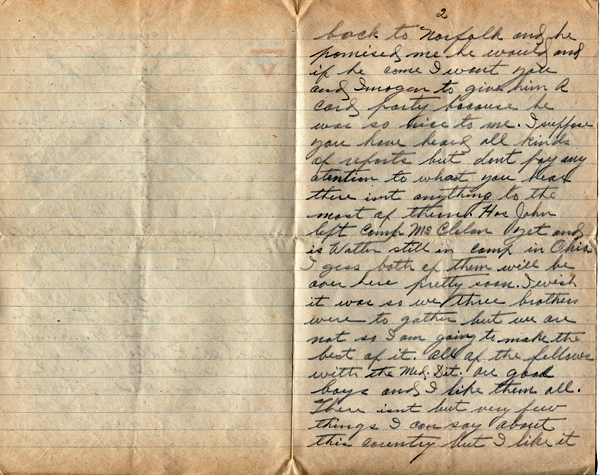 2
back to Norfolk and he
promised me he would and
if he come I want you
and Imogen to give him a
card party because he
was so nice to me. I suppose
you have heard all kinds
of reports but dont pay any
atention to what you hear
there isnt anything to the
most of them. Has John
left Camp Mc Clelan yet and
is Walter still in camp in Ohio
I gess both of them will be
over here pretty soon. I wish
it was so we three brothers
were to gather but we are
not so I am going to make the
best of it. all of the fellows
with the Med. Det. are good
boys and I like them all.
There isnt but very few
things I can say about
this country but I like it